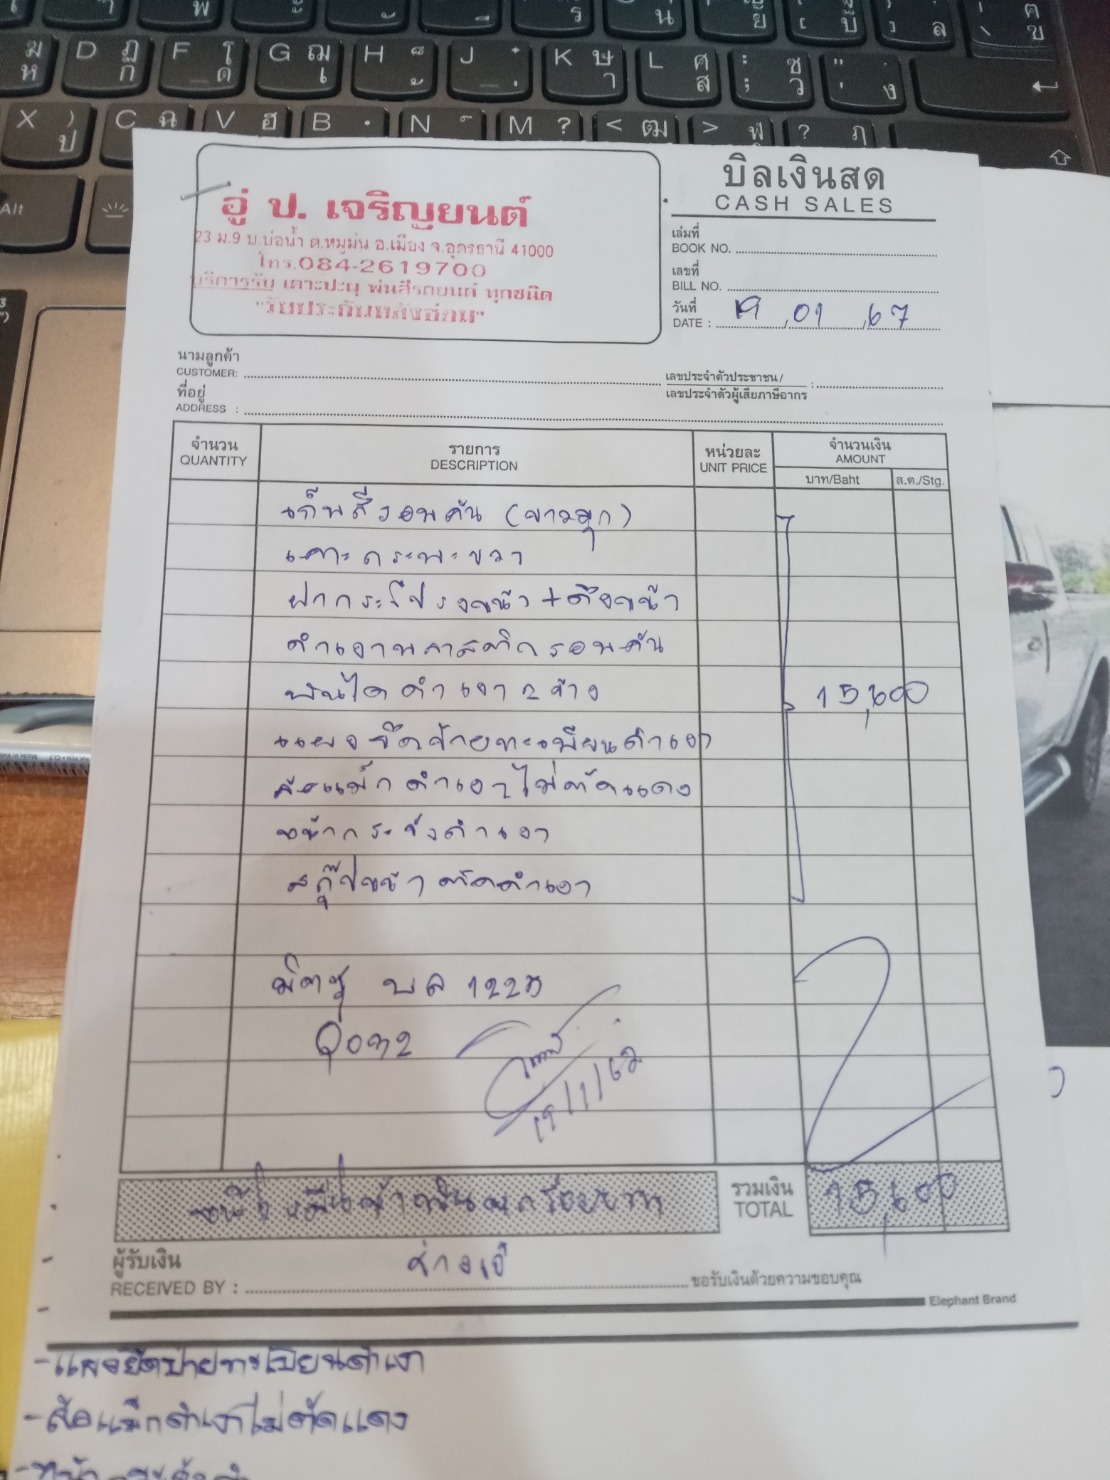 บิลเงินสด
CASH SALES
อู่ ป. เจริญยนต์
23 ม.9 บ.บ่อน้ำ ต.หมูม่น อ.เมือง จ.อุดรธานี 41000
โทร.084-2619700
บริการรับ เคาะปะผุ พ่นสีรถยนต์ ทุกชนิด
"รับประกันหลังซ่อม"
เล่มที่
BOOK NO.
เลขที่
BILL NO.
วันที่
DATE : 19 / 01 / 67
นามลูกค้า
CUSTOMER:
เลขประจำตัวประชาชน/
เลขประจำตัวผู้เสียภาษีอากร
ที่อยู่
ADDRESS :
จำนวน รายการ หน่วยละ จำนวนเงิน
QUANTITY DESCRIPTION UNIT PRICE AMOUNT
บาท/Baht ส.ต./Stg.
เก็บสีรอบคัน (ขาวมุก)
เคาะกระบะขวา
ฝากระโปรงหน้า +
ดำเงาพลาสติกรอบคัน
บันไดดำเงา 2 ข้าง 15,600
แผงยึดป้ายทะเบียนดำเงา
ล้อแม็กดำเงาไม่ตัดแดง
หน้ากระจังดำเงา
สกู๊ปหน้า ตัดดำเงา
มิตซู บล 1225
19/1/67
หนึ่งหมื่นห้าพันหกร้อยบาท
รวมเงิน
TOTAL 15,600
ผู้รับเงิน
RECEIVED BY : ขอรับเงินด้วยความขอบคุณ
Elephant Brand
-แผงยึดป้ายทะเบียนดำเงา
-ล้อแม็กดำเงาไม่ตัดแดง